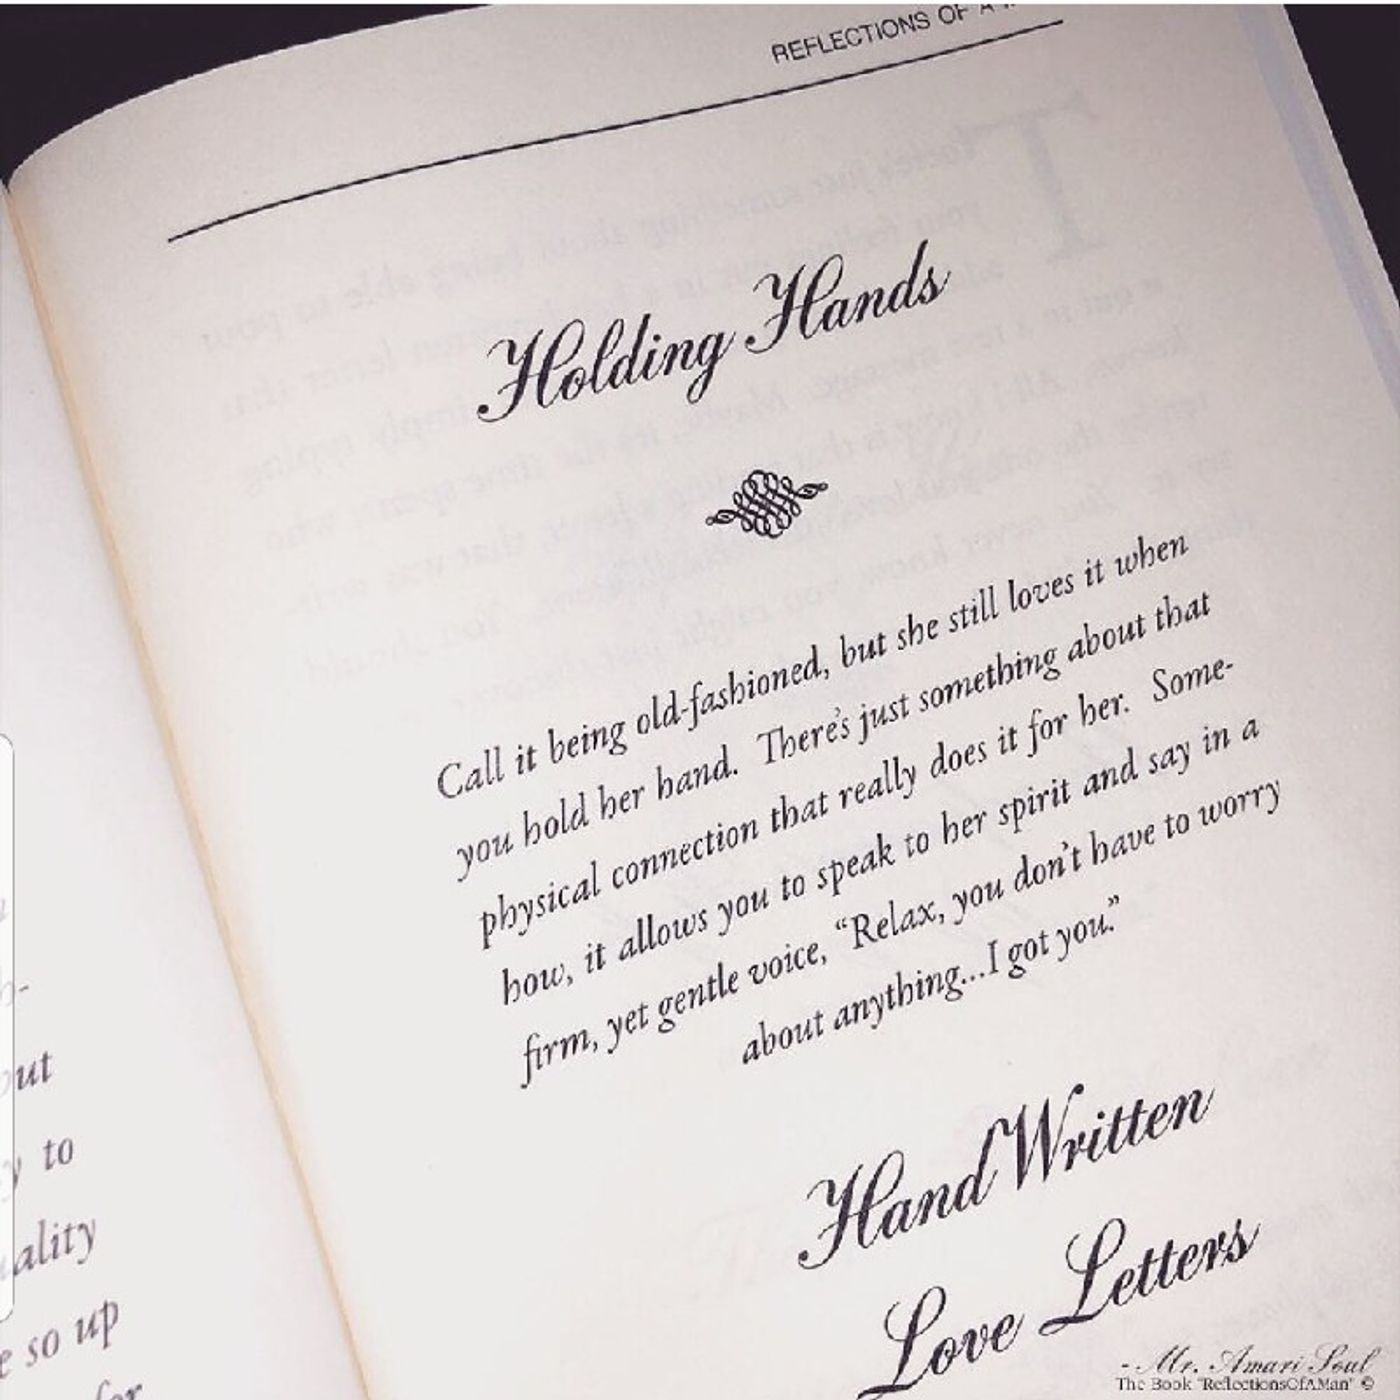 REFLECTIONS OF A
Holding Hands
Call it being old-fashioned, but she still loves it when
you hold her hand. There's just something about that
physical connection that really does it for her. Some-
how, it allows you to speak to her spirit and say in a
firm, yet gentle voice, “Relax, you don't have to worry
about anything...I got you.”
Hand Written
Love Letters
ut
to
ality
so up
for
- Mr. Amari Soul
The Book "ReflectionsOfAMan" ©